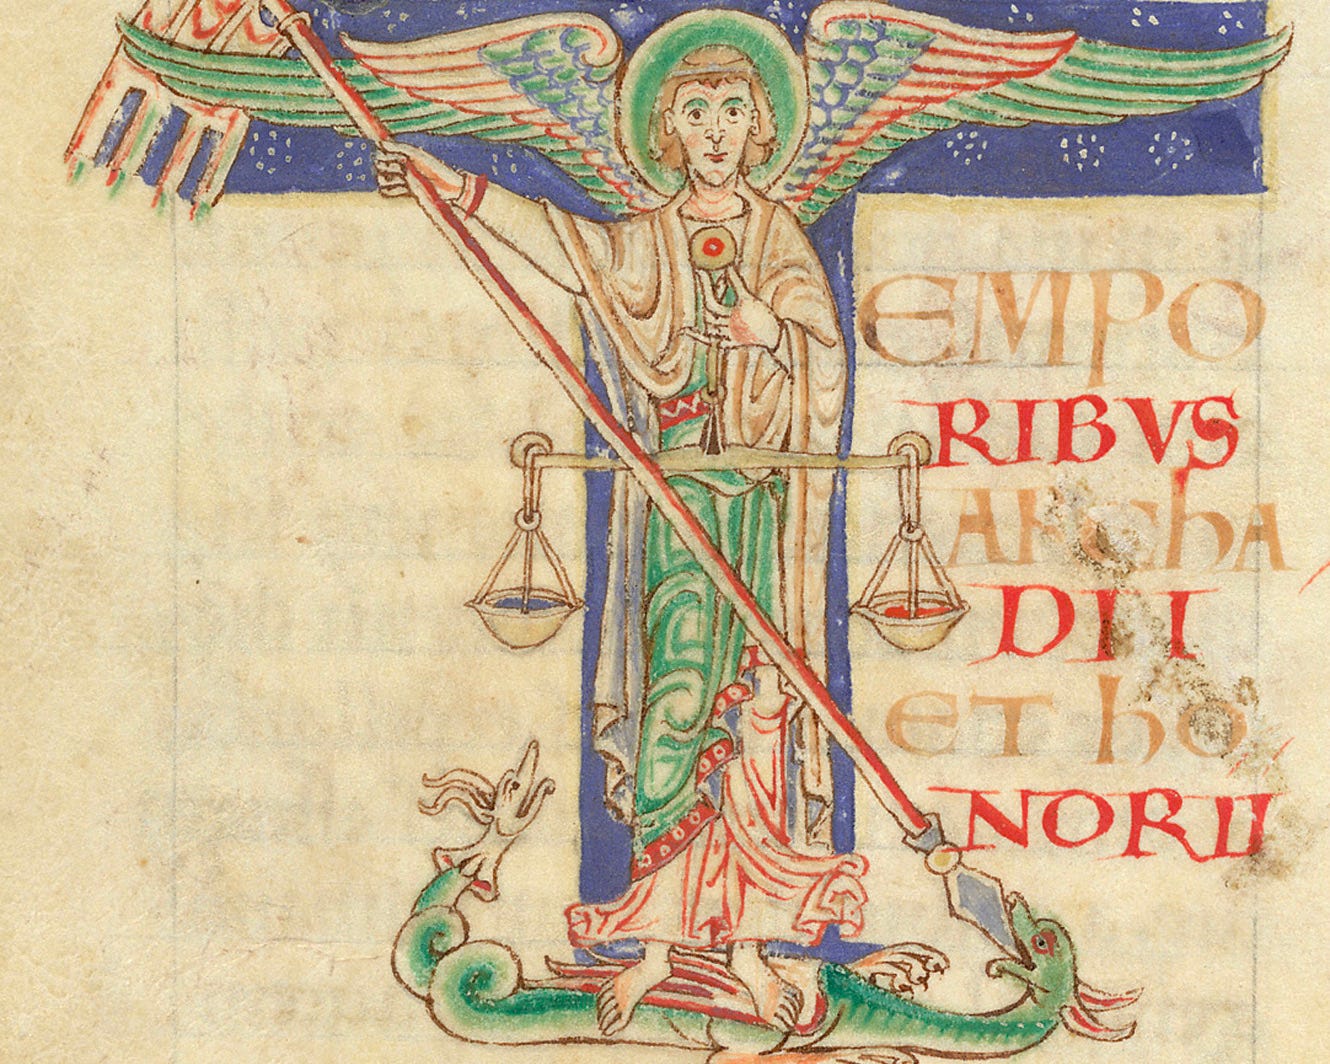 TEMPO
RIBVS
ARChA
DII
ET hO
NORII